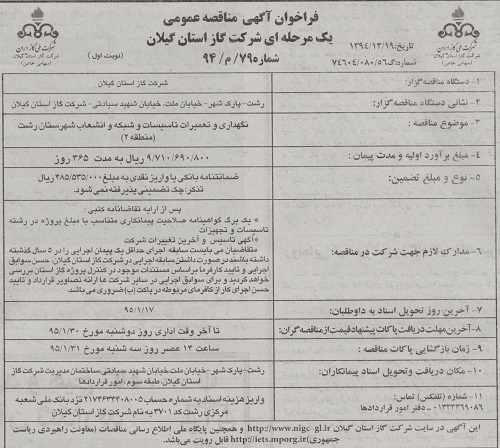 فراخوان آگهی مناقصه عمومی
یک مرحله ای شرکت گاز استان گیلان
شماره ۷۹/م/۹۴
(نوبت اول)
تاریخ: ۱۳۹۴/۱۲/۱۹
شماره: گ۵۶/۰۸۰/۷۴۶۰۴
شرکت ملی گاز ایران
شرکت گاز استان گیلان
(سهامی خاص)
شرکت ملی گاز ایران
شرکت گاز استان گیلان
(سهامی خاص)
۱- دستگاه مناقصه گزار:
شرکت گاز استان گیلان
۲- نشانی دستگاه مناقصه گزار:
رشت- پارک شهر- خیابان ملت، خیابان شهید سیادتی- شرکت گاز استان گیلان
۳- موضوع مناقصه :
نگهداری و تعمیرات تاسیسات و شبکه و انشعاب شهرستان رشت
(منطقه ۲)
۴- مبلغ برآورد اولیه و مدت پیمان :
۹/۷۱۰/۶۹۰/۸۰۰ ریال به مدت ۳۶۵ روز
۵- نوع و مبلغ تضمین:
ضمانتنامه بانکی یا واریز نقدی به مبلغ ۴۸۵/۵۳۵/۰۰۰ ریال
تذکر: چک تضمینی پذیرفته نمی شود.
۶- مدارک لازم جهت شرکت در مناقصه:
پس از ارایه تقاضانامه کتبی :
* یک برگ گواهینامه صلاحیت پیمانکاری متناسب با مبلغ پروژه در رشته
تاسیسات و تجهیزات
* آگهی تاسیس و آخرین تغییرات شرکت
متقاضیان می بایست سابقه اجرای حداقل یک پیمان اجرایی را در ۵ سال گذشته
داشته باشند در صورت داشتن سابقه اجرایی در شرکت گاز استان گیلان، حسن سوابق
اجرایی و تایید کارفرما براساس مستندات موجود در کنترل پروژه گاز استان بررسی
خواهد گردید و برای سوابق اجرایی در سایر شرکت ها ارائه تصاویر قرارداد و تایید
حسن اجرای کار از کارفرمای مربوطه در پاکت (ب) ضروری می باشد.
۷- آخرین روز تحویل اسناد به داوطلبان:
۹۵/۱/۱۷
۸- آخرین مهلت دریافت پاکات پیشنهاد قیمت از مناقصه گران:
تا آخر وقت اداری روز دوشنبه مورخ ۹۵/۱/۳۰
۹- زمان بازگشایی پاکات مناقصه :
ساعت ۱۴ عصر روز سه شنبه مورخ ۹۵/۱/۳۱
۱۰- مکان دریافت و تحویل اسناد پیمانکاران:
رشت- پارک شهر- خیابان ملت- خیابان شهید سیادتی ساختمان مدیریت شرکت گاز
استان گیلان، طبقه سوم ، امور قراردادها
۱۱- شماره (تلفکس) تماس:
۰۱۳۳۳۳۹۰۸۶ - دفتر امور قراردادها
واریز هزینه اسناد به شماره حساب ۲۱۷۴۶۳۳۴۰۸۰۰۵ نزد بانک ملی شعبه
مرکزی رشت کد ۳۷۰۱ به نام شرکت گاز استان گیلان
این آگهی در سایت شرکت گاز استان گیلان http://www.nigc-gl.ir و همچنین پایگاه ملی اطلاع رسانی مناقصات (معاونت راهبردی ریاست
جمهوری) http://iets.mporg.ir قابل رویت می باشد.